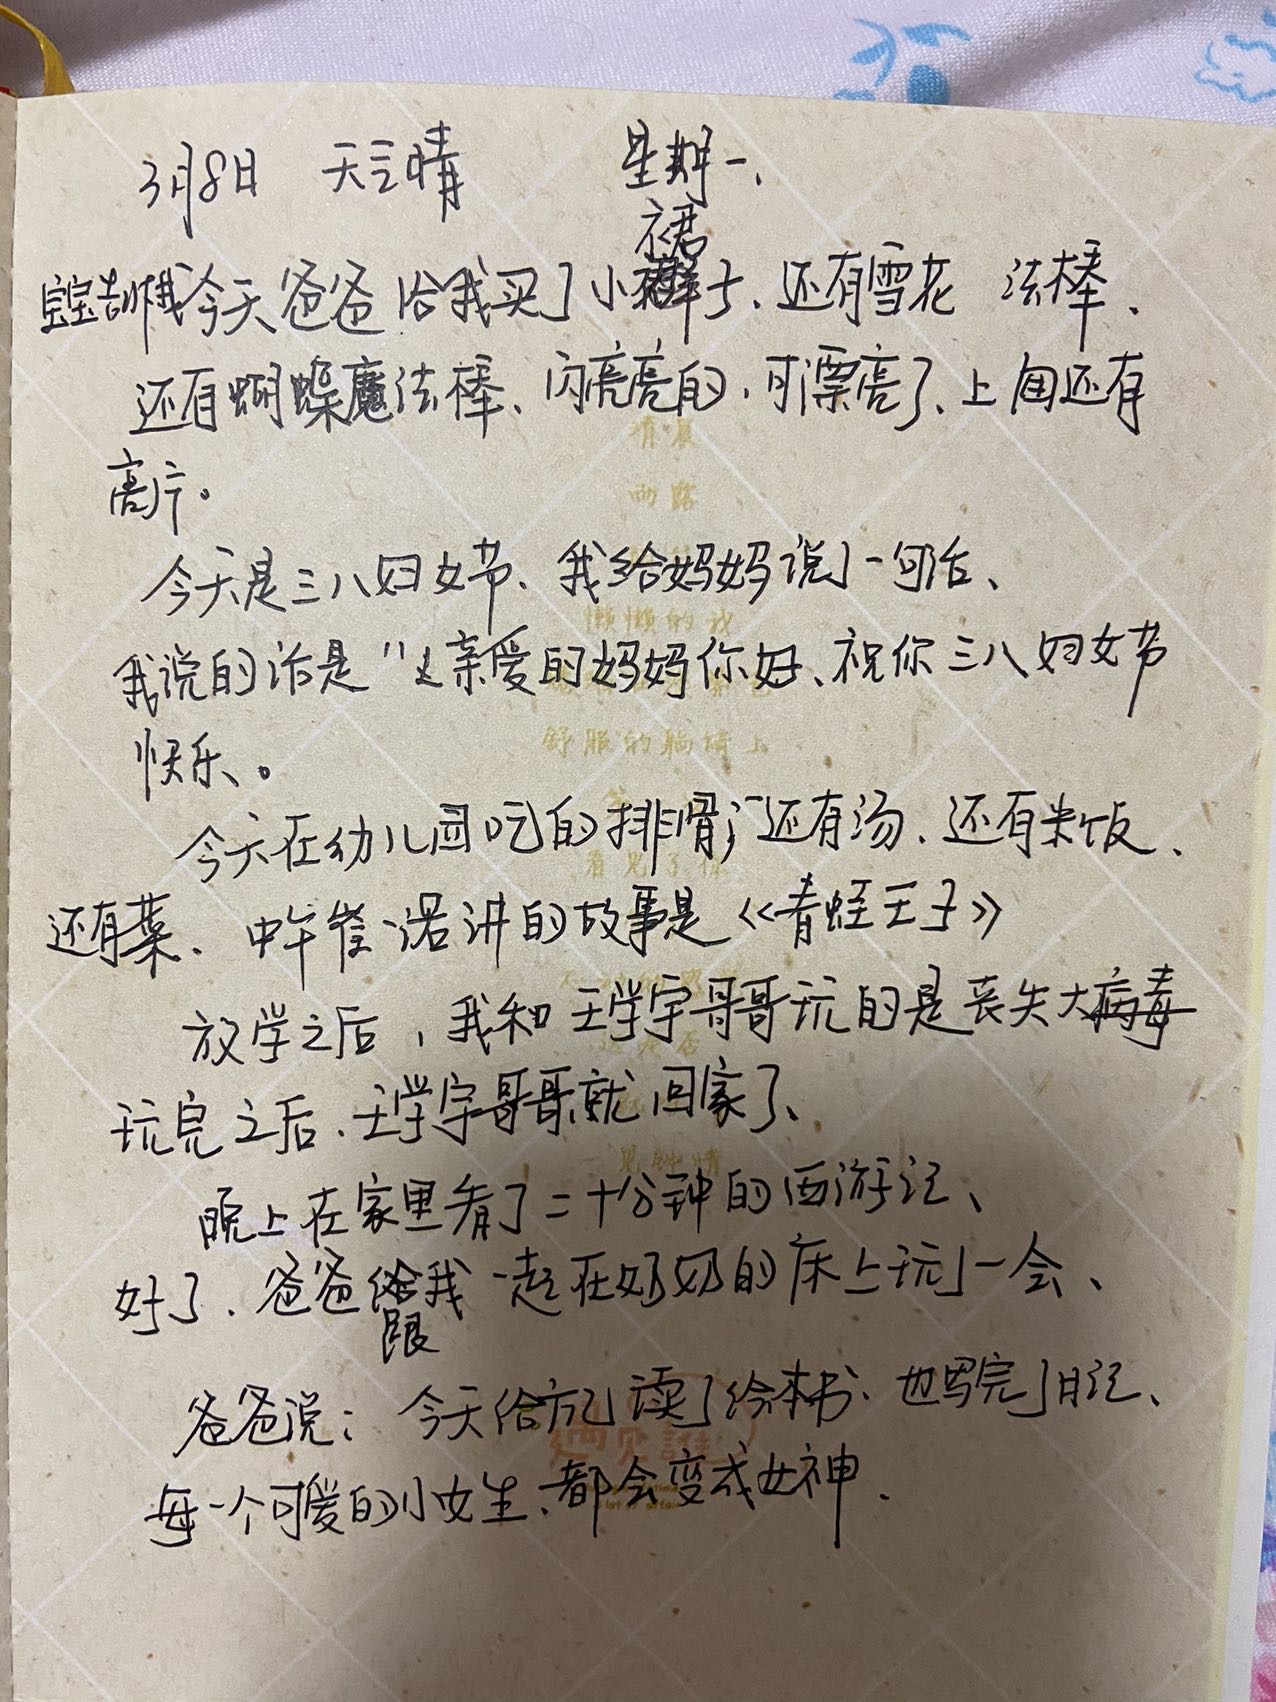 3月8日 天气晴 星期一、
裙
宝宝告诉我今天爸爸给我买了小子、还有雪花 法棒、
还有蝴蝶魔法棒、闪亮亮的、可漂亮了、上面还有
亮片。
今天是三八妇女节、我给妈妈说了一句话、
我说的话是"亲爱的妈妈你好、祝你三八妇女节
快乐、。
今天在幼儿园吃的排骨,还有汤、还有米饭、
还有菜、中午崔诺讲的故事是《青蛙王子》
放学之后,我和王学宇哥哥玩的是丧失大病毒
玩完之后、王学宇哥哥就回家了、
晚上在家里看了二十分钟的西游记、
好了、爸爸给我一起在奶奶的床上玩了一会、
跟
爸爸说:今天给读了绘本书、也写完了日记、
每一个可爱的小女生、都会变成女神、
清晨
雨露
懒懒的我
舒服的躺椅上
看见了你
一见钟情
遇见誰